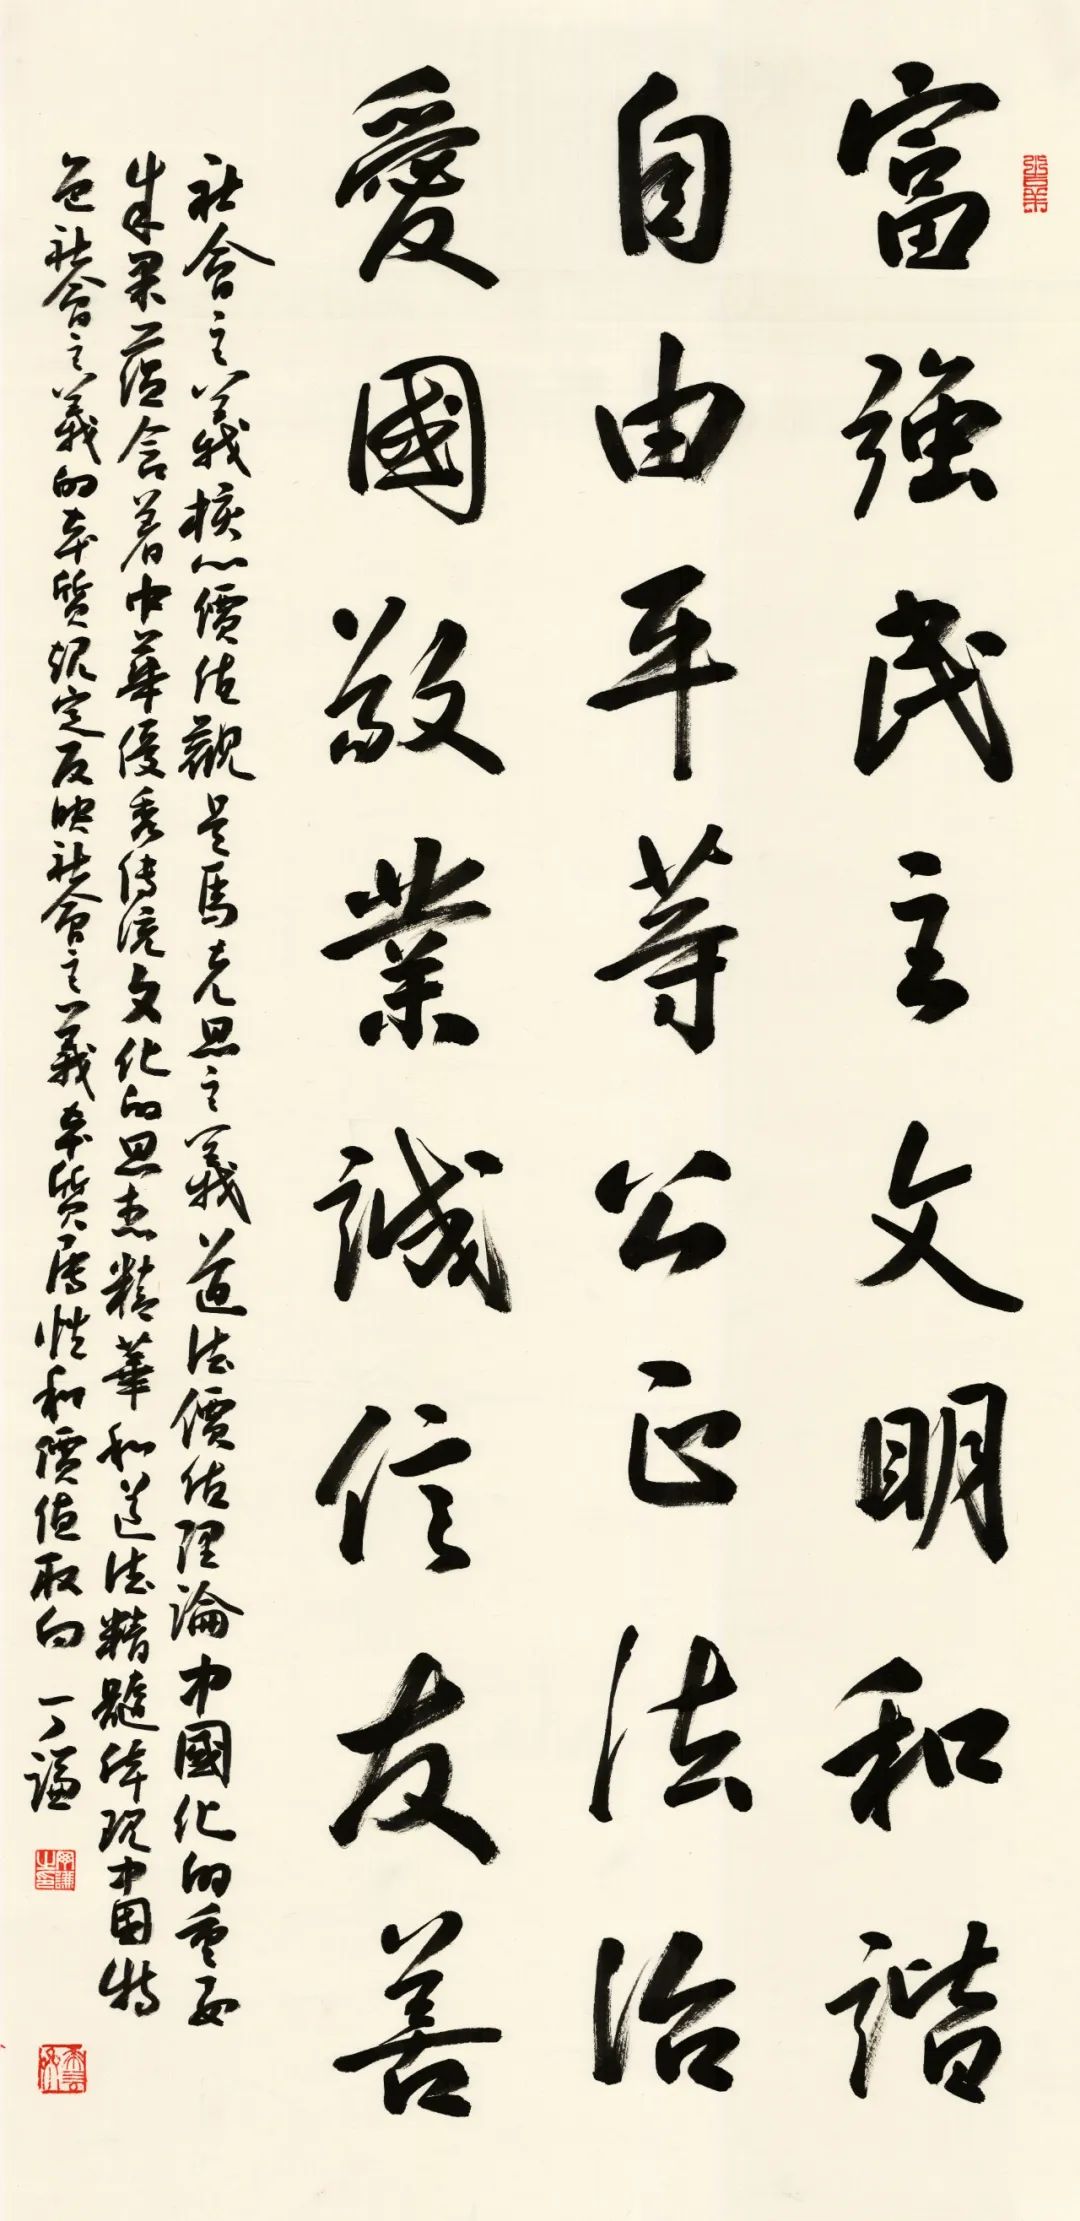 富強民主文明和諧
自由平等公正法治
愛國敬業誠信友善
社會主義核心價值觀是馬克思主義道德價值理論中國化的重要
成果蕴含着中華優秀傳統文化的思想精華和道德精髓体現中国特
色社會主義的本質規定反映社會主義本質属性和價值取向 丁謙